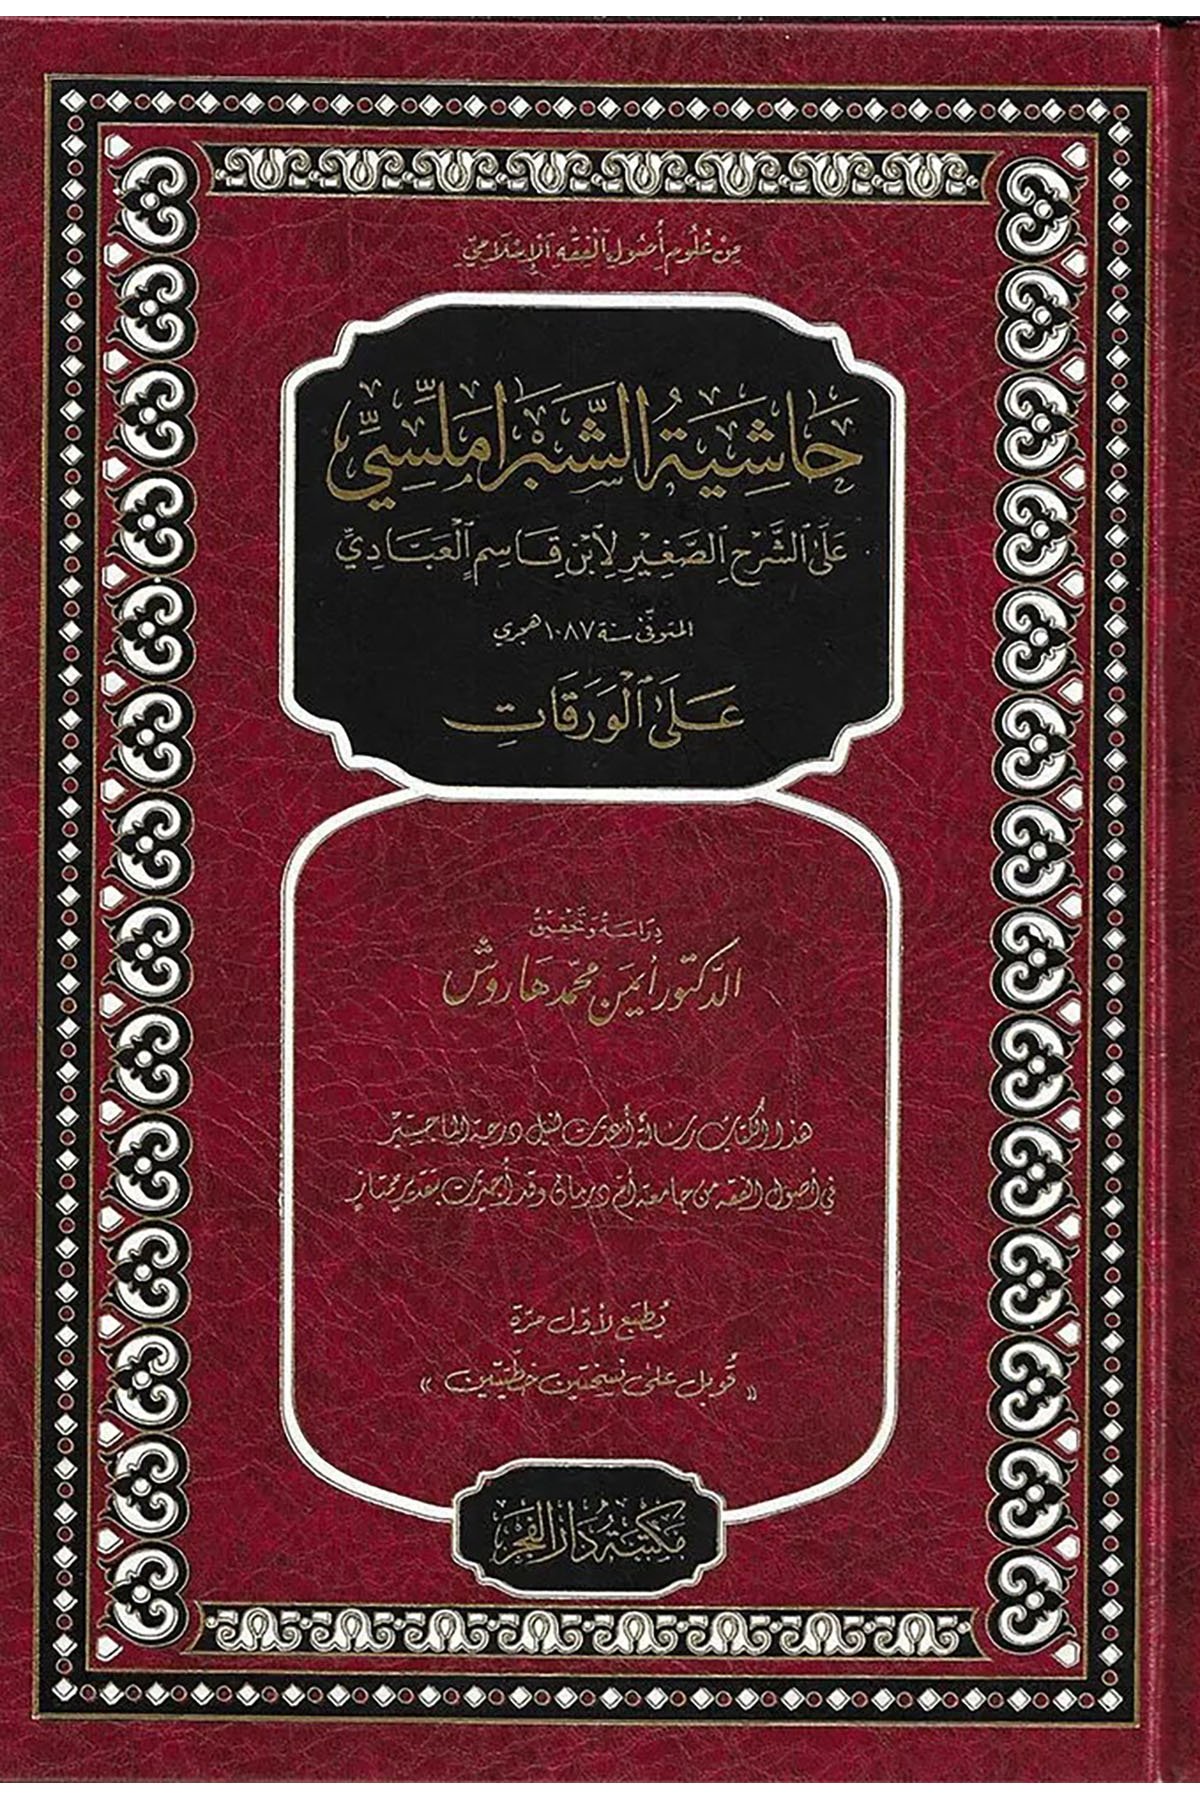 مِنْ عُلُومِ أُصُولِ ٱلْفِقْهِ ٱلْإِسْلَامِيِّ
حَاشِيَةُ الشَّبْرَامَلِّسِيِّ
عَلَى ٱلشَّرْحِ ٱلصَّغِيْرِ لِٱبْنِ قَاسِمٍ ٱلْعَبَّادِيِّ
المتوفّى سنة ١٠٨٧ هجري
عَلَى ٱلْوَرَقَاتِ
دِرَاسَةُ وَتَحْقِيْقُ
الدّكتور أيمَن محمّد هَاروش
هذا الكتاب رسالة أعدت لنيل درجة الماجستير
في أصول الفقه من جامعة أم درمان وقد أجيزت بتقدير ممتاز
يُطبَع لأوّل مرّة
« قُوبل على نسختين خطّيتين »
مَكتبَة دَار الفَجر